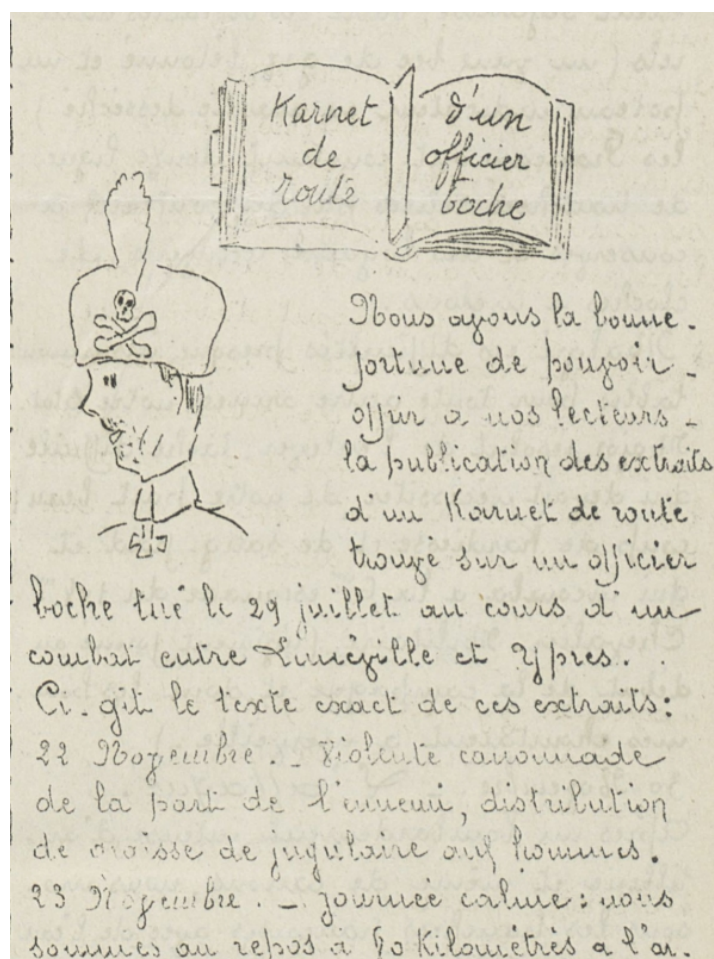 Karnet
de
route
d'un
officier
boche
Nous avons la bonne.
fortune de pouvoir
offrir a nos lecteurs
la publication des extraits
d'un Karnet de route
trouvé sur un officier
boche tué le 29 juillet au cours d'un
combat entre Lunéville et Ypres.
Ci-gît le texte exact de ces extraits:
22 Novembre. _ Violente canonnade
de la part de l'ennemi, distribution
de graisse de jugulaire aux hommes.
23 Novembre. _ Journée calme: nous
sommes au repos à 50 Kilomètres a l'ar-